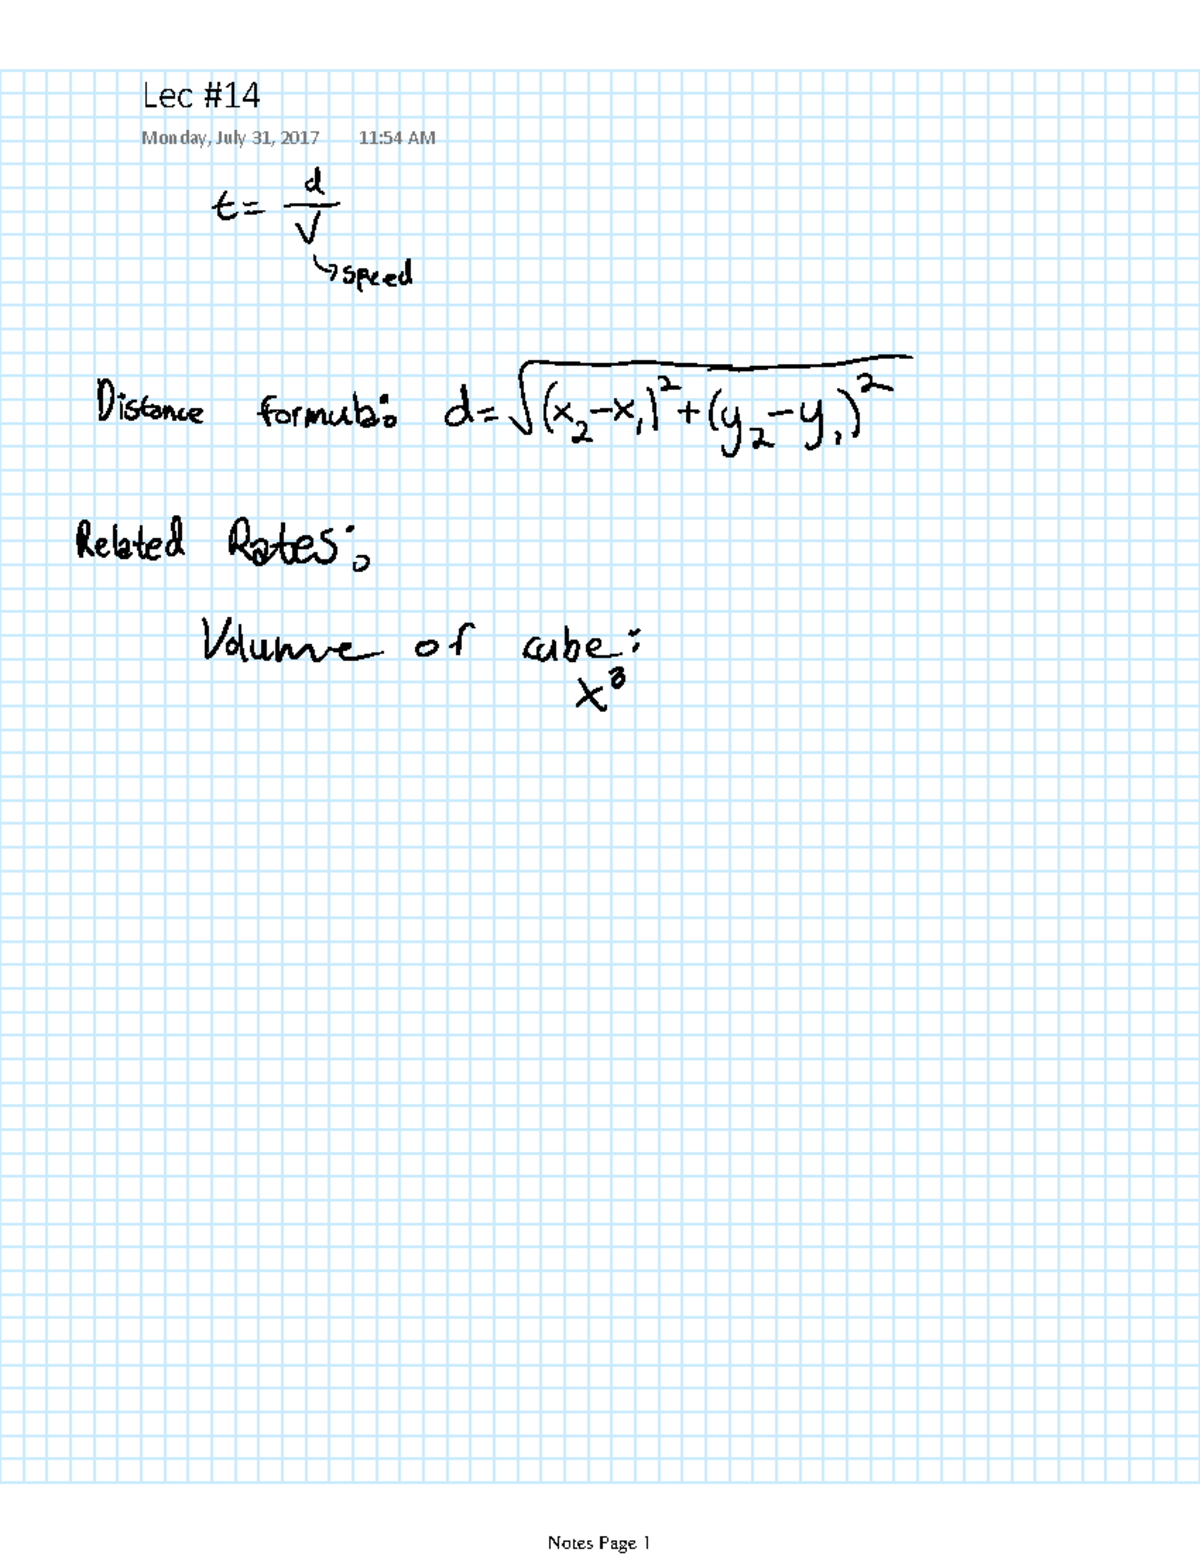 Lec #14
Monday, July 31, 2017 11:54 AM
t = d/v
→ speed
Distance formula: d = √((x₂-x₁)² + (y₂-y₁)²)
Related Rates:
Volume of cube:
x³
Notes Page 1